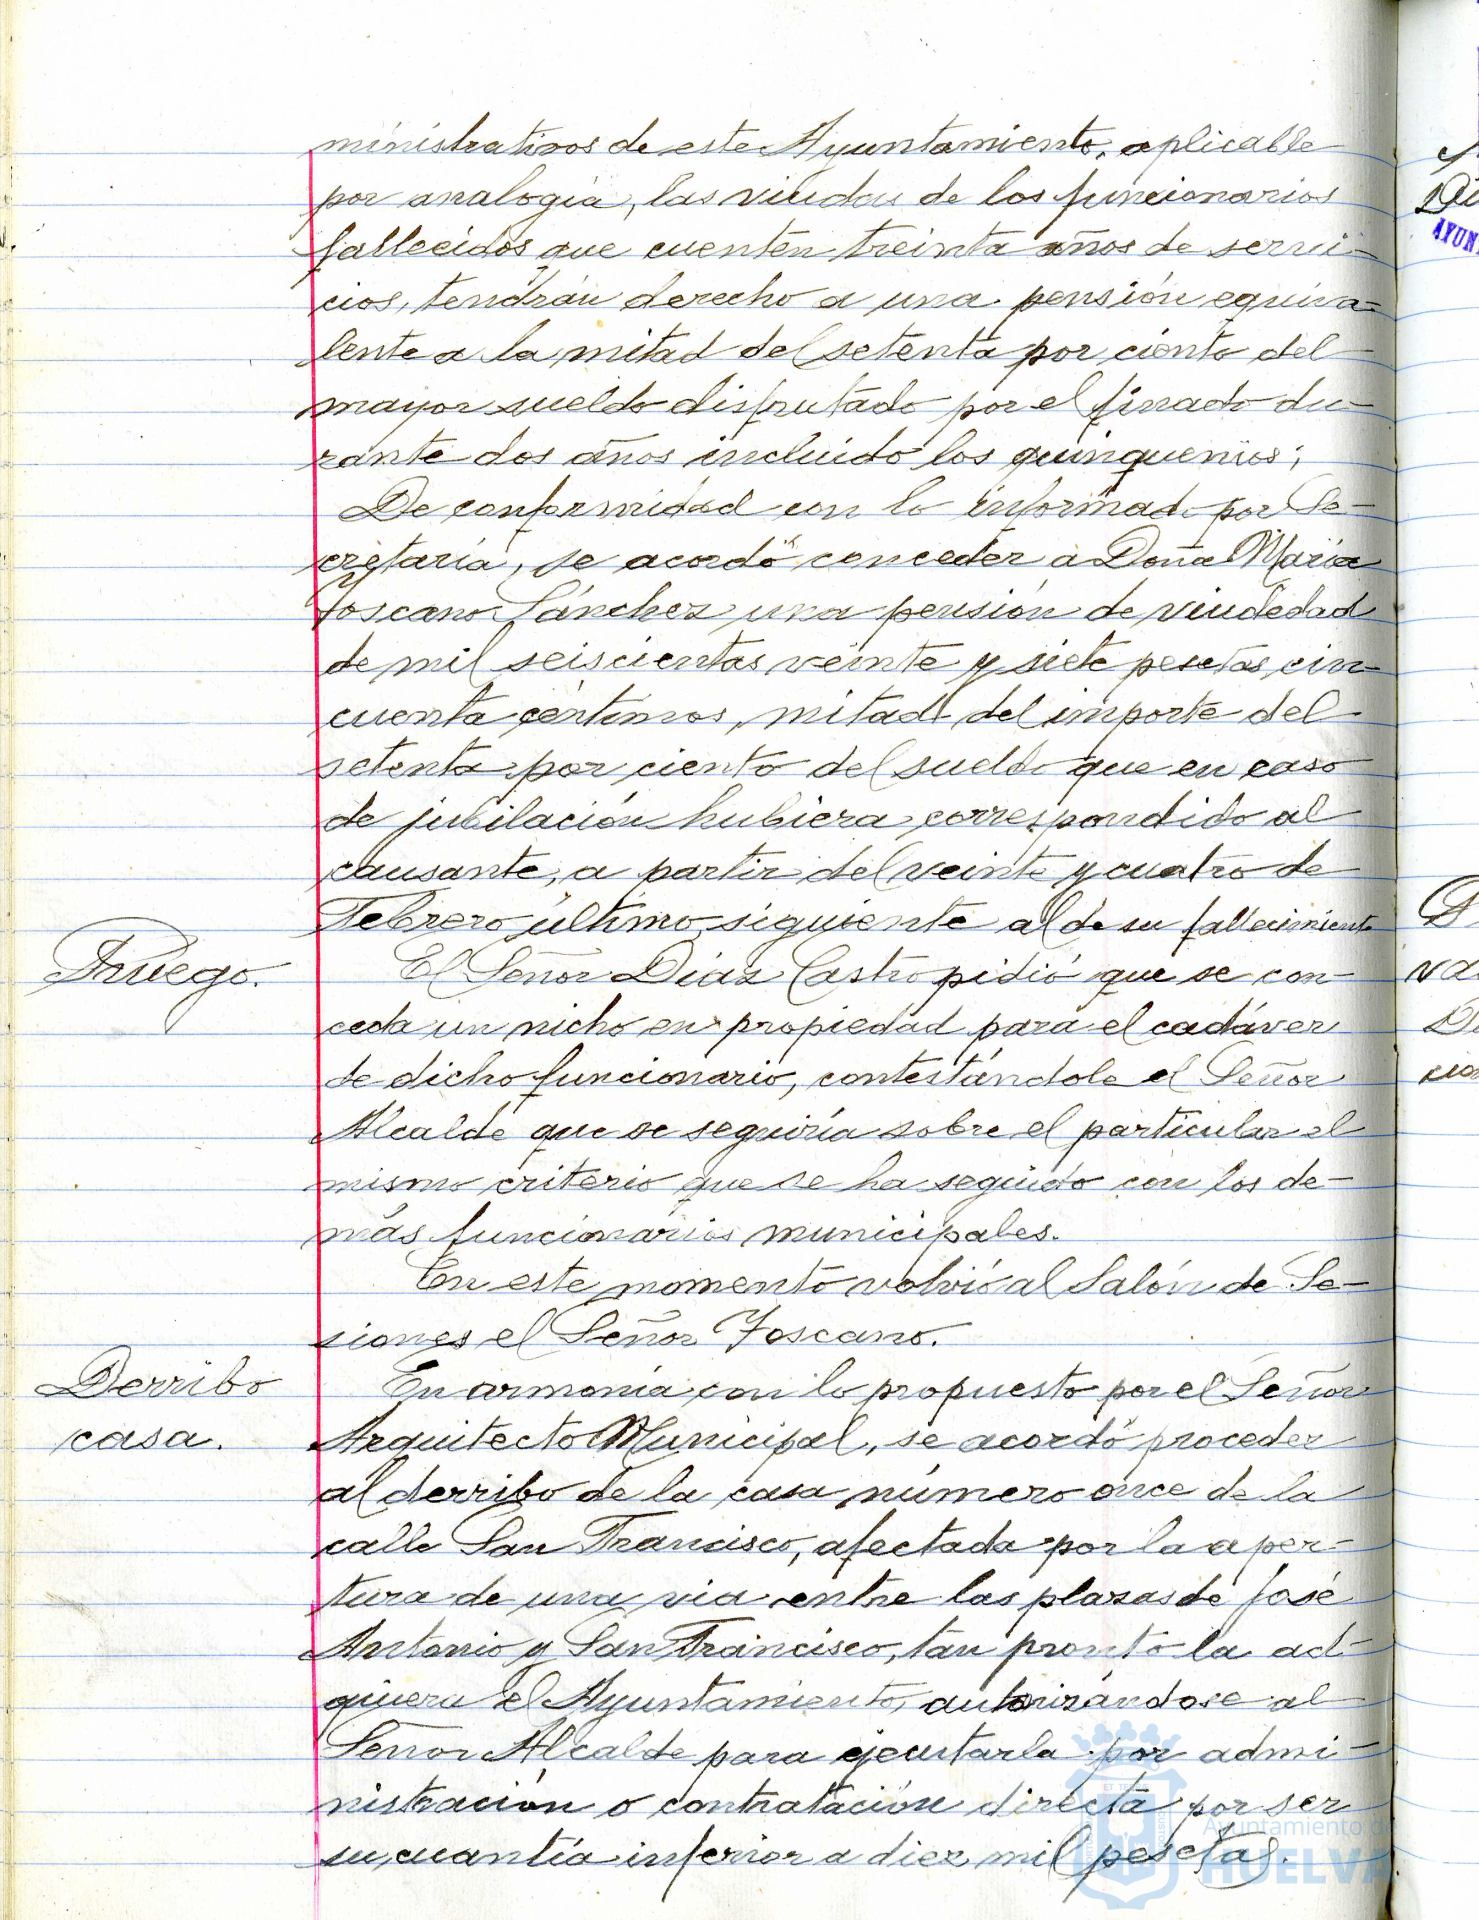 ministrativos de este Ayuntamiento, aplicable
por analogía, las viudas de los funcionarios
fallecidos que cuenten treinta años de servi-
cios, tendrán derecho a una pensión equiva-
lente a la mitad del setenta por ciento del
mayor sueldo disfrutado por el finado du-
rante dos años incluido los quinquenios;
De conformidad con lo informado por Se-
cretaría, se acordó conceder a Doña María
Toscano Sánchez una pensión de viudedad
de mil seiscientas veinte y siete pesetas, cin-
cuenta céntimos, mitad del importe del
setenta por ciento del sueldo que en caso
de jubilación hubiera correspondido al
causante, a partir del veinte y cuatro de
Febrero último, siguiente al de su fallecimiento
Ruego.
El Señor Díaz Castro pidió que se con-
ceda un nicho en propiedad para el cadáver
de dicho funcionario, contestándole el Señor
Alcalde que se seguiría sobre el particular el
mismo criterio que se ha seguido con los de-
más funcionarios municipales.
En este momento volvió al Salón de Se-
siones el Señor Toscano.
Derribo
casa.
En armonía con lo propuesto por el Señor
Arquitecto Municipal, se acordó proceder
al derribo de la casa número once de la
calle San Francisco, afectada por la aper-
tura de una vía entre las plazas de José
Antonio y San Francisco, tan pronto la ad-
quiera el Ayuntamiento, autorizándose al
Señor Alcalde para ejecutarla por admi-
nistración o contratación directa por ser
su cuantía inferior a diez mil pesetas.
Ayuntamiento de
HUELVA